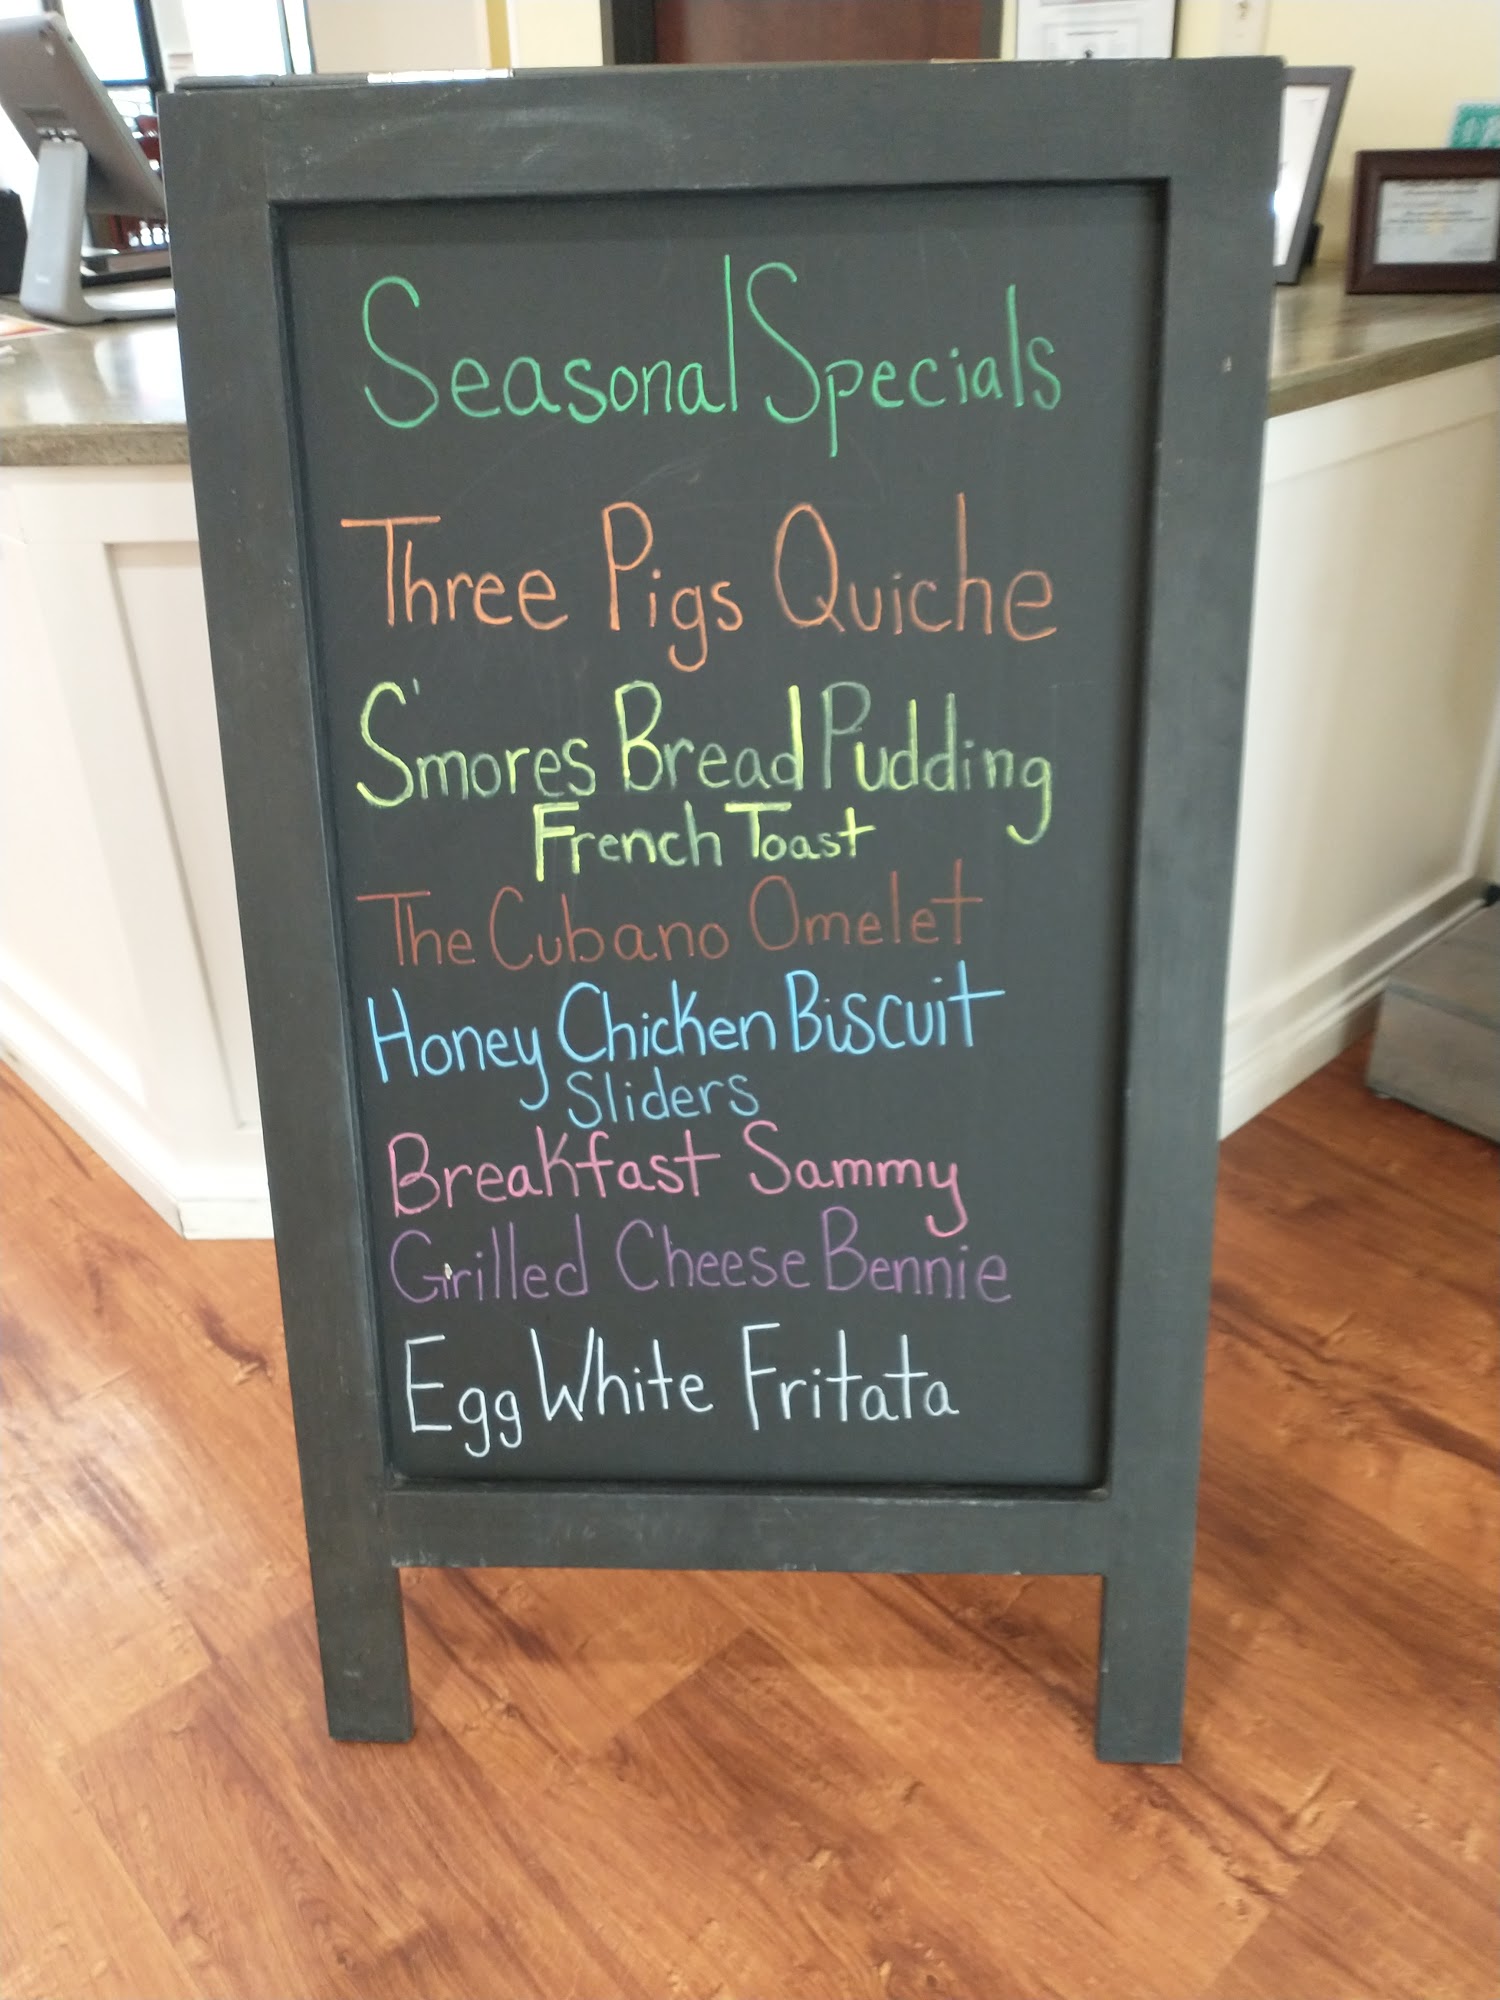 Seasonal Specials
Three Pigs Quiche
S'mores Bread Pudding
French Toast
The Cubano Omelet
Honey Chicken Biscuit
Sliders
Breakfast Sammy
Grilled Cheese Bennie
Egg White Fritata